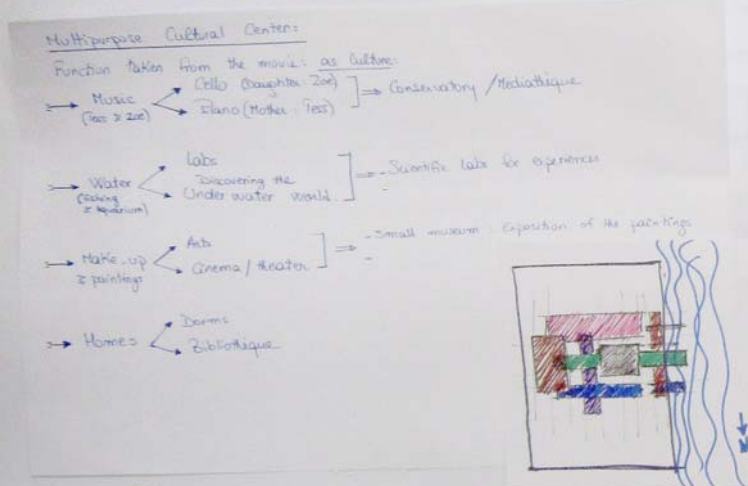 Multipurpose Cultural Center:
Function taken from the movie: as Culture:
Music
(Tess & Zoe)
Cello (Daughter: Zoe)
Piano (Mother: Tess)
Conservatory / Mediathique
Water
(fishing & aquarium)
Labs
Discovering the
Under water world.
- Scientific labs for experiences
-
Make-up
& paintings
Arts
Cinema / theater
- Small museum: Exposition of the paintings
-
Homes
Dorms
Bibliothique